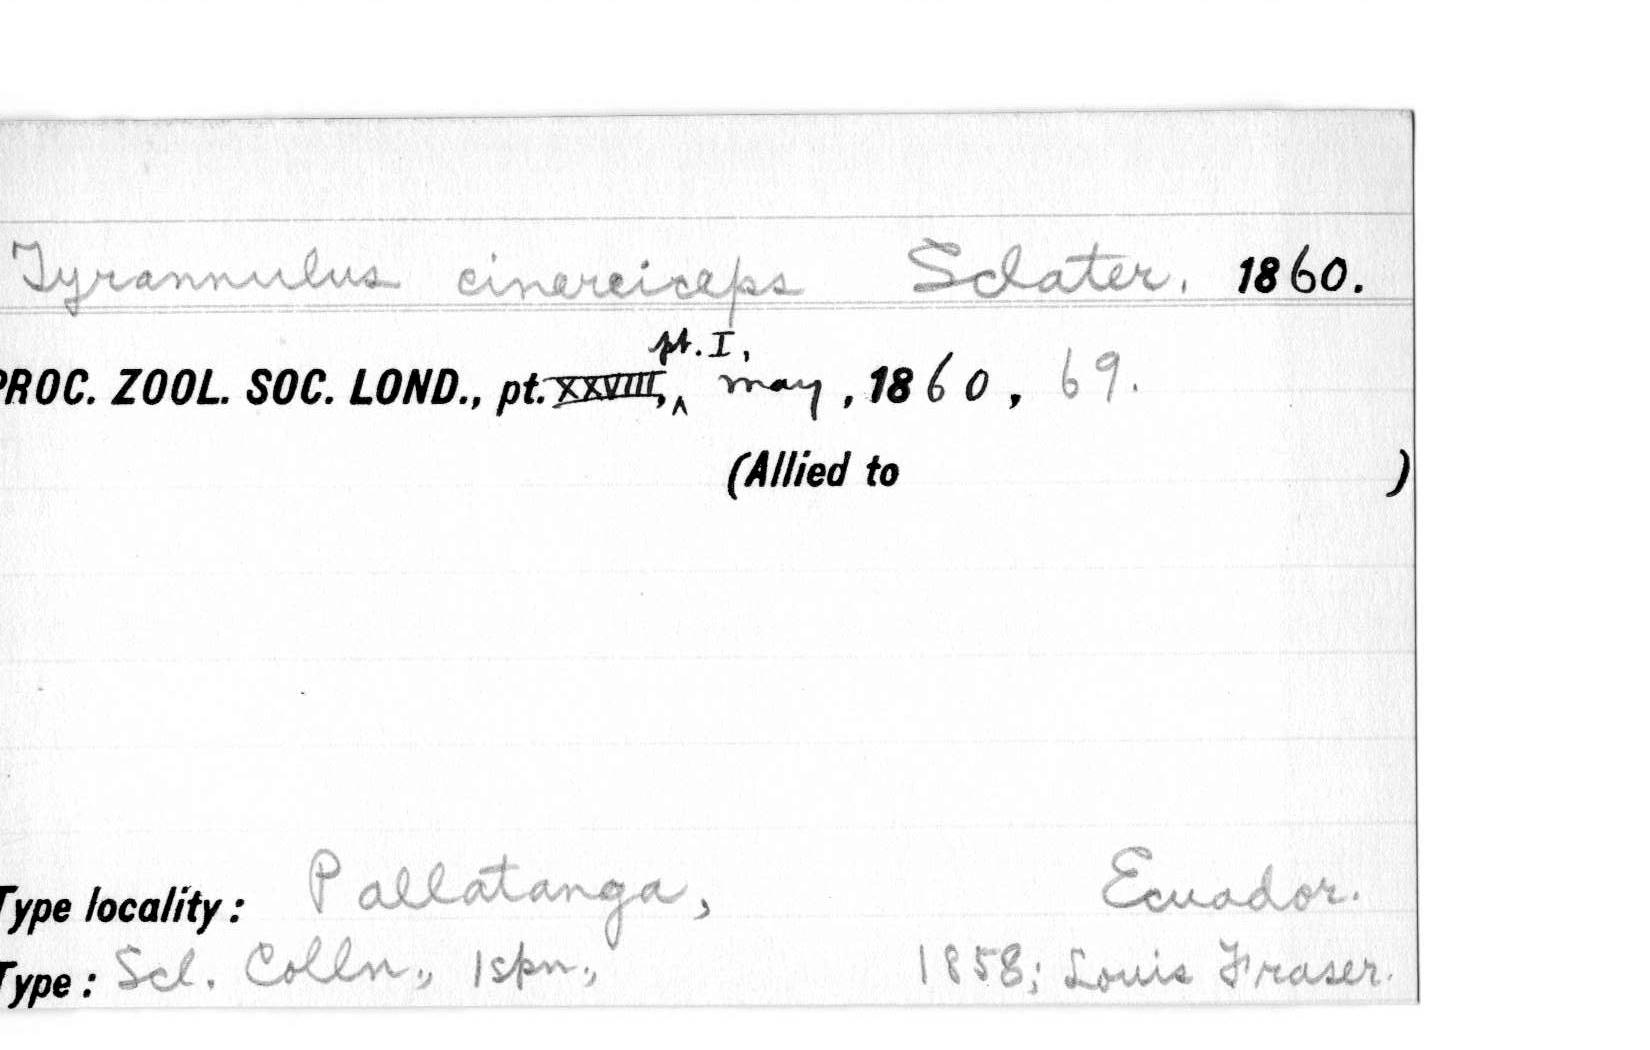 Tyrannulus cinereiceps Sclater. 1860.
pt. I,
PROC. ZOOL. SOC. LOND., pt. XXVIII, ^ May, 1860, 69.
(Allied to )
Type locality: Pallatanga, Ecuador.
Type: Scl. Colln., 1 spn., 1858; Louis Fraser.